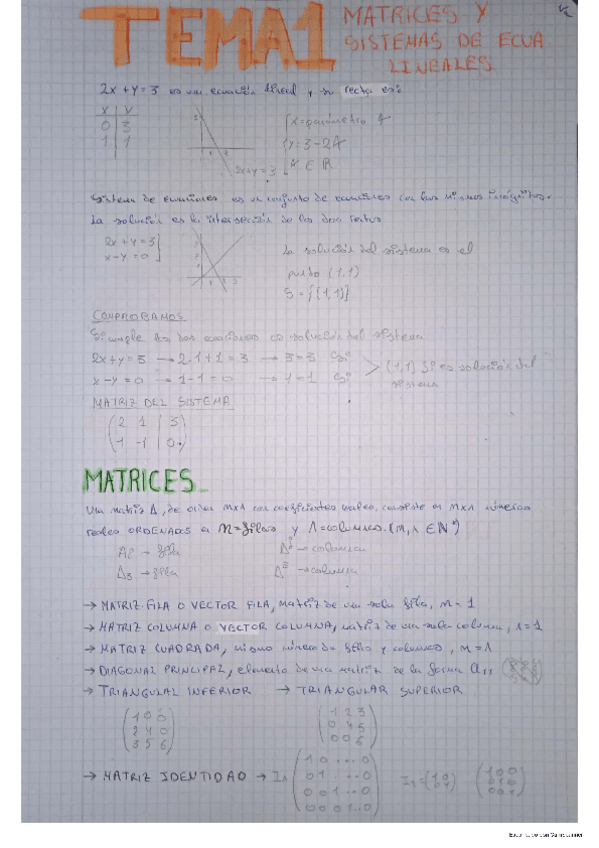 TEMA1 MATRICES Y
SISTEMAS DE ECUA
LINEALES
2x + y = 3 es una ecuación lineal y su recta es:
x y
0 3
1 1
x = parámetro
y = 3 - 2
∈ ℝ
2x+y=3
Sistema de ecuaciones es un conjunto de ecuaciones con las mismas incógnitas.
La solución es la intersección de las dos rectas
2x + y = 3
x - y = 0
La solución del sistema es el
punto (1,1)
S = {(1,1)}
COMPROBAMOS
Si cumple las dos ecuaciones es solución del sistema
2x + y = 3 → 2·1 + 1 = 3 → 3 = 3 Sí
x - y = 0 → 1 - 1 = 0 → 1 = 1 Sí
(1,1) Sí es solución del
sistema
MATRIZ DEL SISTEMA
2 1 | 3
1 -1 | 0
MATRICES
Una matriz A, de orden mxn con coeficientes reales, consiste en mxn números
reales ORDENADOS en m=filas y n=columnas. (m, n ∈ ℕ*)
→ fila → columna
A3 → fila → columna
→ MATRIZ FILA O VECTOR FILA, matriz de una sola fila, m = 1
→ MATRIZ COLUMNA O VECTOR COLUMNA, matriz de una sola columna, n = 1
→ MATRIZ CUADRADA, mismo número de filas y columnas, m = n
→ DIAGONAL PRINCIPAL, elemento de una matriz de la forma
→ TRIANGULAR INFERIOR → TRIANGULAR SUPERIOR
1 0 0 1 2 3
2 4 0 0 4 5
3 5 6 0 0 6
→ MATRIZ IDENTIDAD → In
1 0 ... 0
0 1 ... 0
0 0 1 ... 0
0 0 0 1 .. 0
1 0
0 1
1 0 0
0 1 0
0 0 1